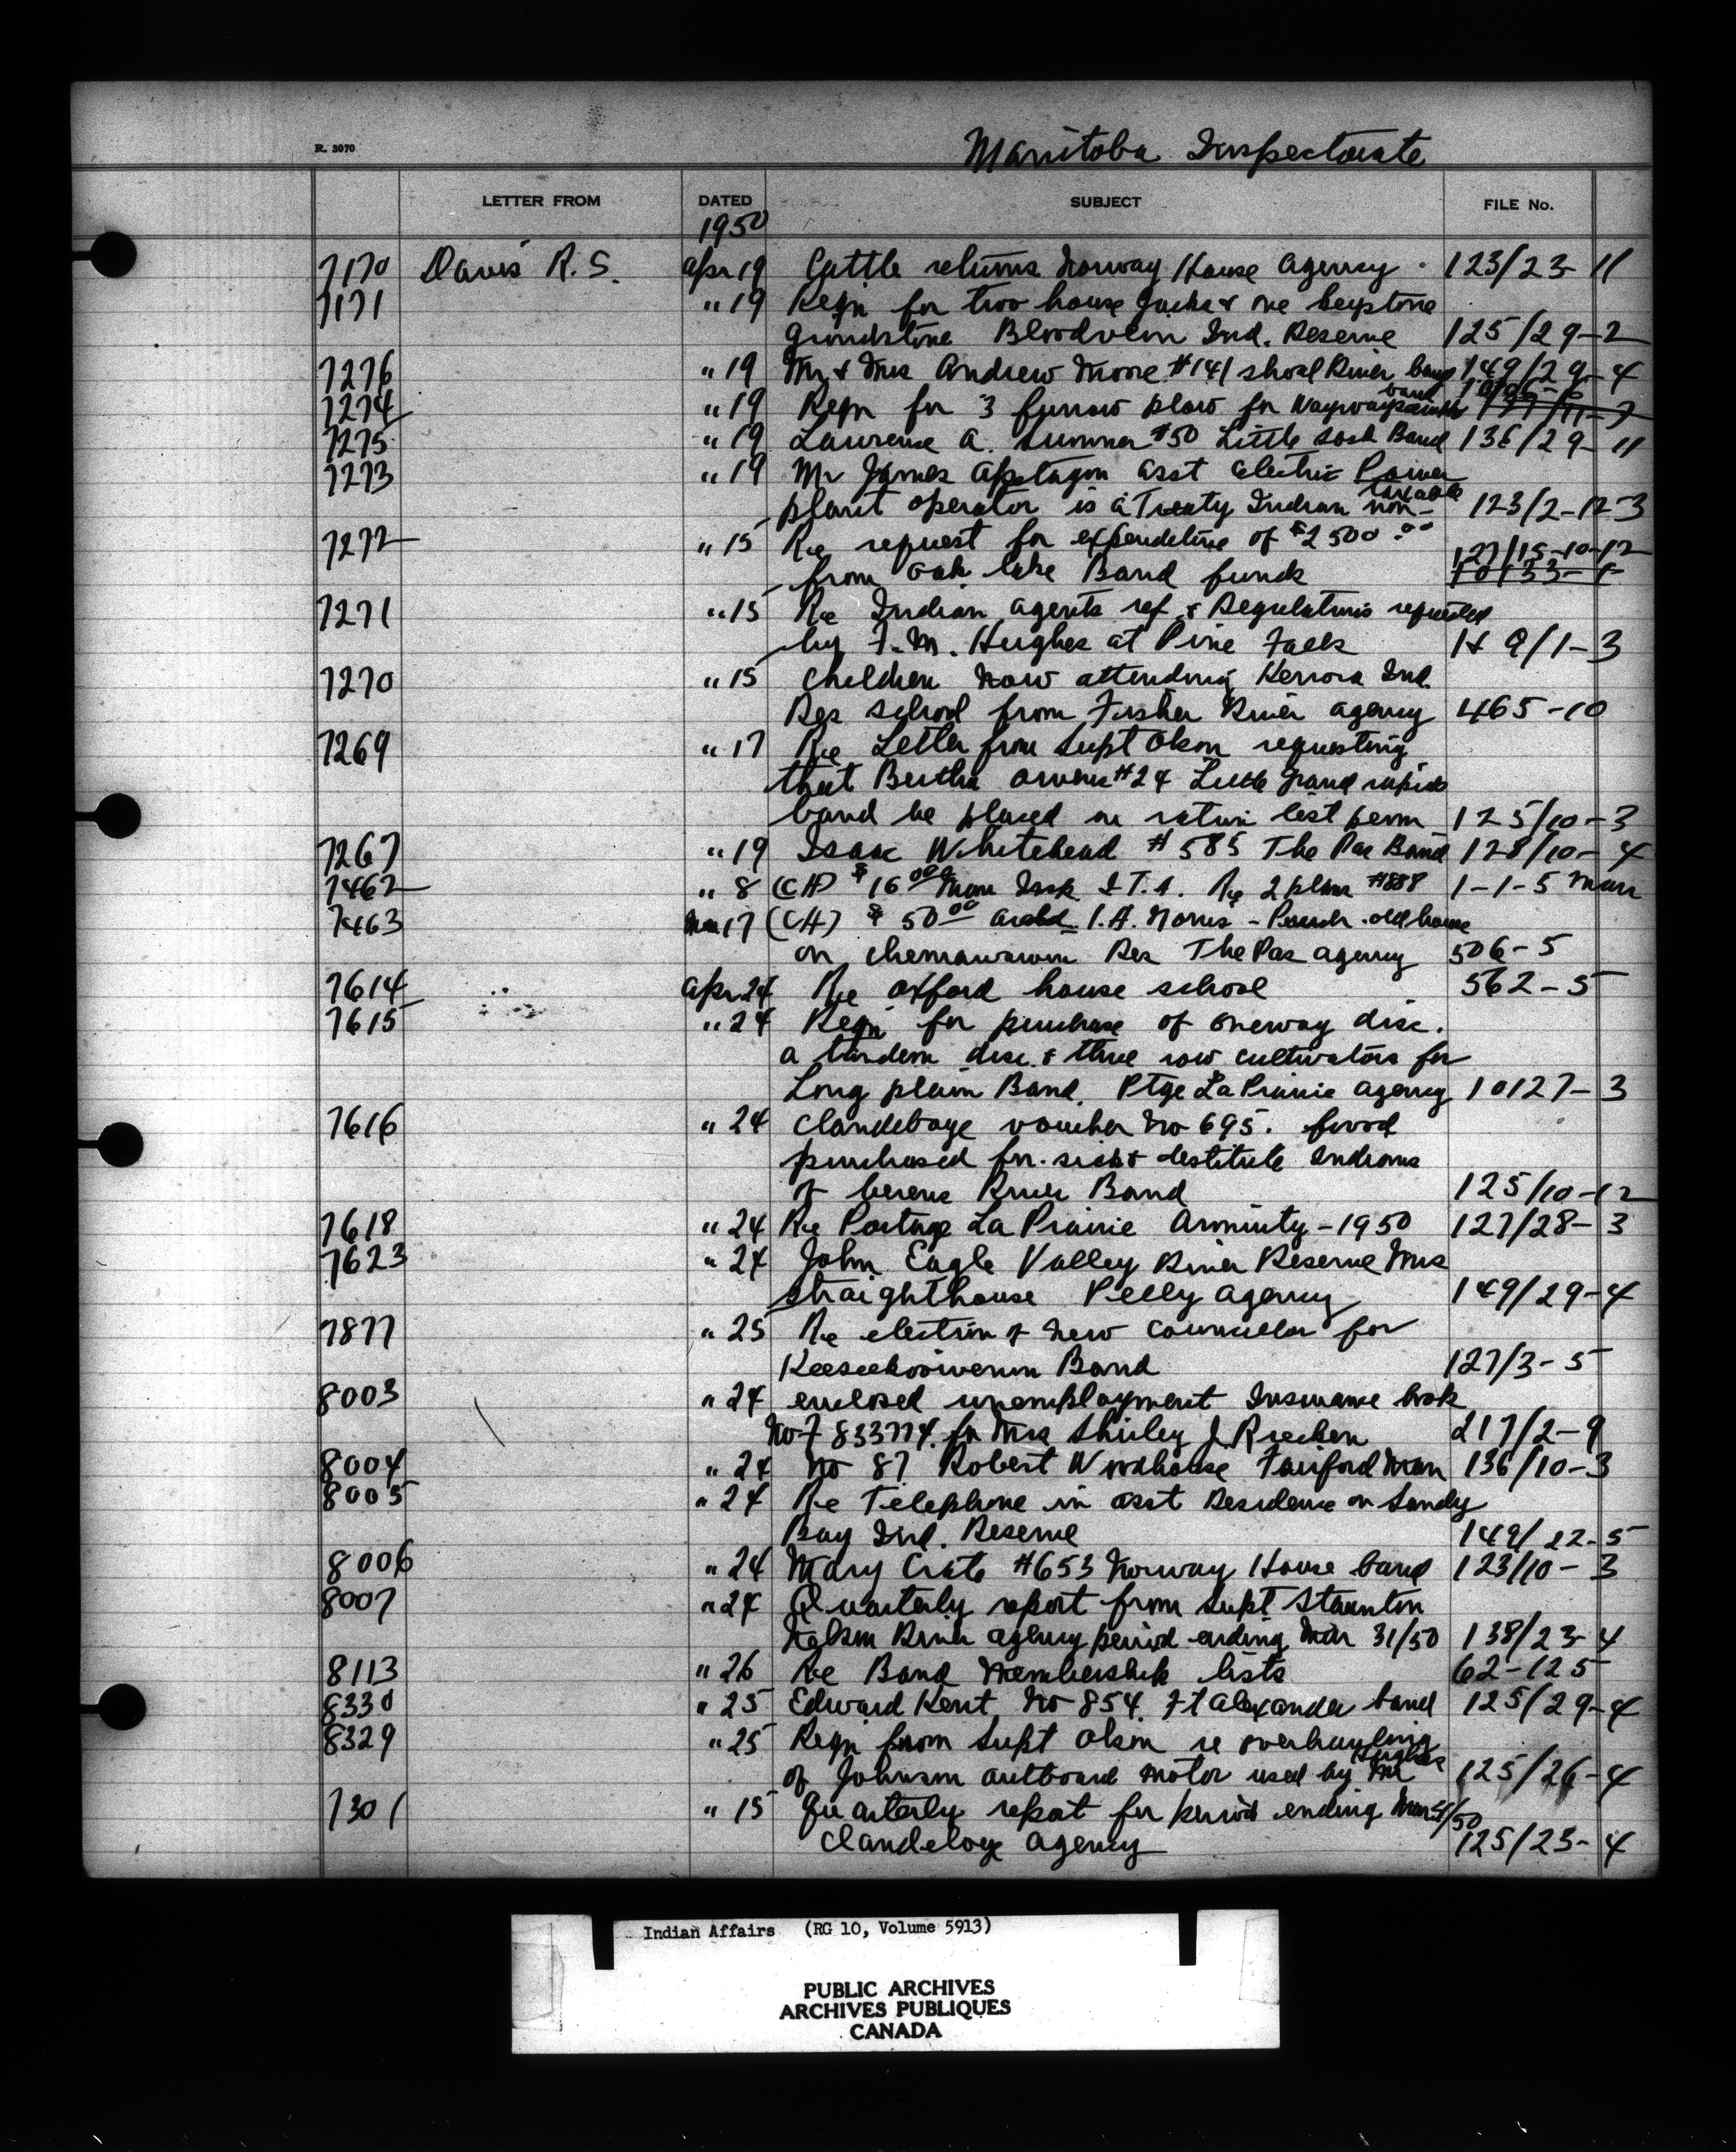 R. 3070
Manitoba Inspectorate
LETTER FROM DATED SUBJECT FILE No.
1950
7170 Davis R.S. Apr 19 Cattle returns Norway House Agency 123/23-11
7171 " 19 Reqn for two house Jacks & one keystone
grindstone Bloodvein Ind. Reserve 125/29-2
7276 " 19 Mr & Mrs Andrew Moore #141 Shoal River band 149/29-4
7274 " 19 Reqn for 3 furrow plow for band
7275 " 19 Lawrence A. Sumner #50 Little Sask Band 136/29-11
7273 " 19 Mr James Apetagon asst electric Power
plant operator is a Treaty Indian non-taxable 123/2-12-3
7272 " 15 Re request for expenditure of $2500.00
from Oak lake Band funds 127/15-10-12
10133-1
7271 " 15 Re Indian Agents ref & Regulations requested
by F.M. Hughes at Pine Falls 1/1-3
7270 " 15 children now attending Kenora Ind.
Res school from Fisher River agency 465-10
7269 " 17 Re Letter from Supt Olson requesting
that Bertha Owens #24 Little Grand rapids
band be placed on ration list perm 125/10-3
7267 " 19 Isaac Whitehead #585 The Pas Band 128/10-4
7462 " 8 (CH) $16 Man Insp I.T.A. Re 2 plans #888 1-1-5 Man
7463 Mar 17 (CH) $50.00 I.A. Norris - Purch. old house
on Chemawawin Res The Pas agency 506-5
7614 Apr 24 Re Oxford house school 562-5
7615 " 24 Reqn for purchase of oneway disc.
a tandem disc & three row cultivators for
Long plain Band. Ptge La Prairie agency 10127-3
7616 " 24 Clandeboye voucher No 695. food
purchased for sick & destitute Indians
of berens River Band 125/10-12
7618 " 24 Re Portage La Prairie Annuity - 1950 127/28-3
7623 " 24 John Eagle Valley River Reserve Mrs
Straighthouse Pelly Agency 149/29-4
7877 " 25 Re election of new Councelor for
Keeseekoowenin Band 127/3-5
8003 " 24 enclosed unemployment Insurance book
No F 833774. for Mrs Shirley J. 217/2-9
8004 " 24 No 87 Robert Woodhouse Fairford Man 136/10-3
8005 " 24 Re Telephone in asst Residence on Sandy
Bay Ind. Reserve 149/22-5
8006 " 24 Mary Crate #653 Norway House band 123/10-3
8007 " 24 Quarterly report from Supt Staunton
Nelson River agency period ending Mar 31/50 138/23-4
8113 " 26 Re Band Membership lists 62-125
8330 " 25 Edward Kent No 854. Ft Alexander band 125/29-4
8329 " 25 Reqn from Supt Olson re overhauling
of Johnson outboard motor used by Mr Hughes 125/26-4
7301 " 15 Quarterly report for period ending Mar 31/50
Clandeboye Agency 125/23-4
Indian Affairs (RG 10, Volume 5913)
PUBLIC ARCHIVES
ARCHIVES PUBLIQUES
CANADA